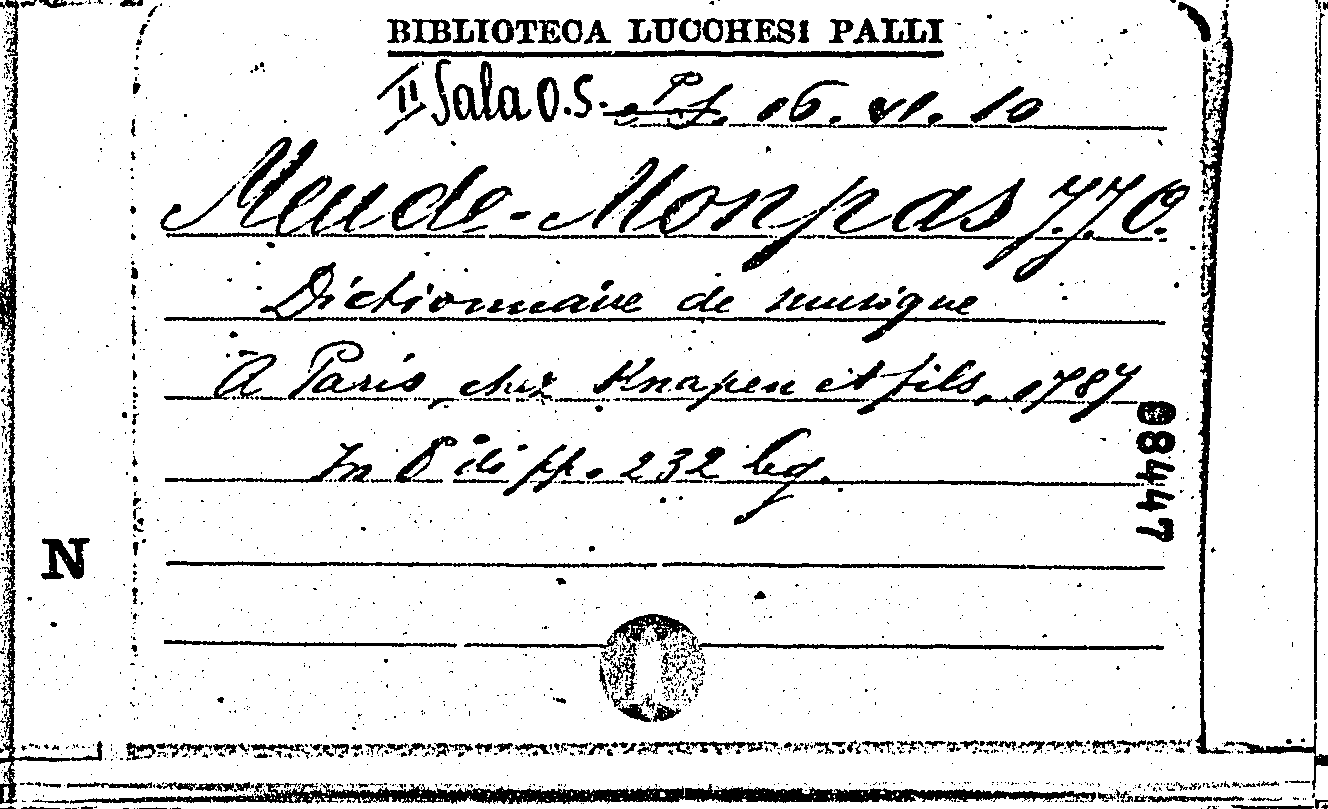 BIBLIOTECA LUCCHESI PALLI
II Sala O.S. 06. VI. 10
Meude-Monpas J.J.O.
Dictionnaire de musique
A Paris, chez Knapen et fils, 1787
In 8° di pp. 232 leg.
08447
N